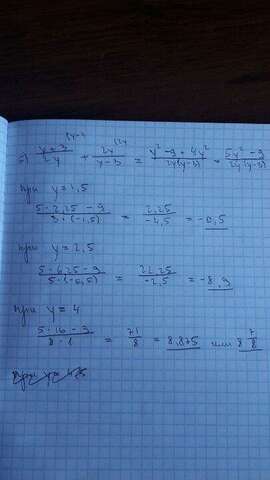 а) (y+3)/2y + 2y/(y-3) = (y² - 9 + 4y²)/2y(y-3) = (5y² - 9)/2y(y-3)
при y = 1,5
(5·2,25 - 9)/3·(-1,5) = 2,25/-4,5 = -0,5
при y = 2,5
(5·6,25 - 9)/5·(-0,5) = 22,25/-2,5 = -8,9
при y = 4
(5·16 - 9)/8·1 = 71/8 = 8,875 или 8 7/8